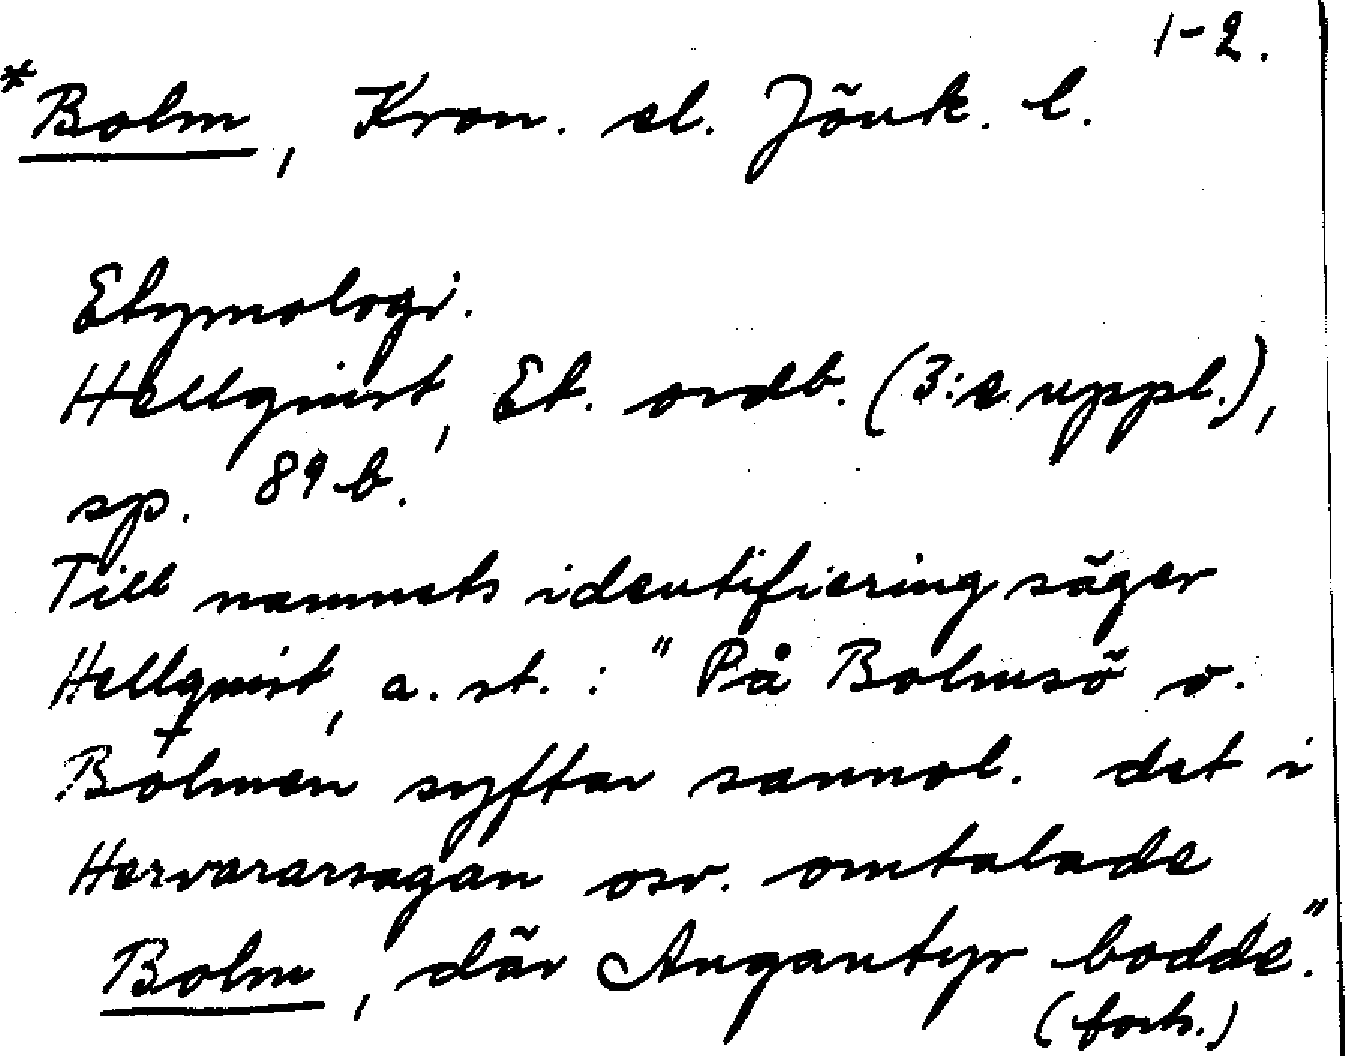 1-2.
*Bolm, Kron. el. Jönk. l.
Etymologi.
Hellquist, Et. ordb. (3:e uppl.),
sp. 89 b.
Till namnets identifiering säger
Hellquist, a. st. : "På Bolmsö o.
Bolmen syftar sannol. det i
Hervararsagan osv. omtalade
Bolm, där Angantyr bodde."
(forts.)